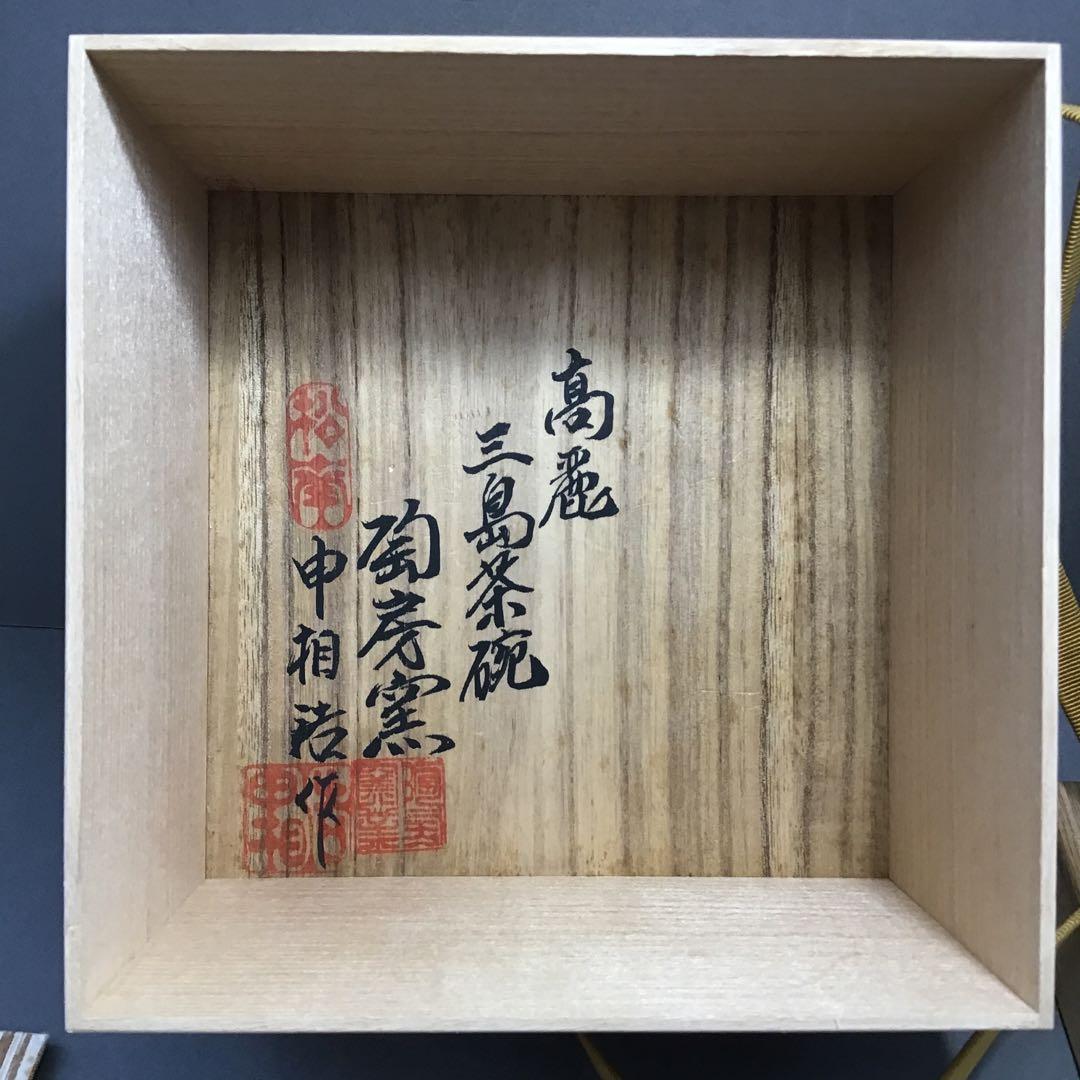 高麗
三島茶碗
陶房窯
松南
申相浩作